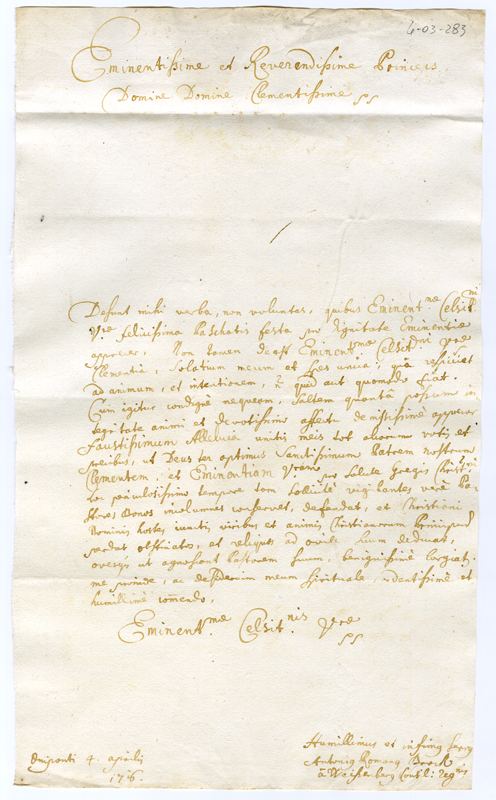 4-03-283
Eminentissime et Reverendissime Princeps
Domine Domine Clementissime
Desunt mihi verba, non voluntas, quibus Eminent.mae Celsit.ni
V.rae felicissima Paschatis festa pro dignitate Eminentiae
apprecer. Non tamen deest Eminent.mae Celsit.ni V.rae
Clementia, solatium meum et spes unica, quae respiciet
ad animum, et intentionem, quid aut quomodo fiat.
Cum igitur condigne nequeam, saltem quanta possum in
tegritate animi et devotissimo affectu demississime apprecor
Faustissimum Alleluia unitis meis tot aliorum votis et
precibus, ut Deus ter optimus Sanctissimum Patrem nostrum
Clementem, et Eminentiam V.ram pro salute gregis Christi
hoc periculosissimo tempore tam vigilantes vere Pa
stores bonos incolumes conservet, defendat, et Christiani
Nominis hostes iunctis viribus et animis Christianorum Principum
perdat obstinatos, et reliquos ad ovile suum deducat,
ovesque ut agnoscant Pastorem suum, benignissime largiatur.
me porro, ac desiderium meum spirituale, ardentissime et
humillime com̄endo.
Eminent.mae Celsit.nis V.rae
Humillimus et infimus servus
Oeniponti 4. aprilis Antonius Romanus
176. à Weissenberg